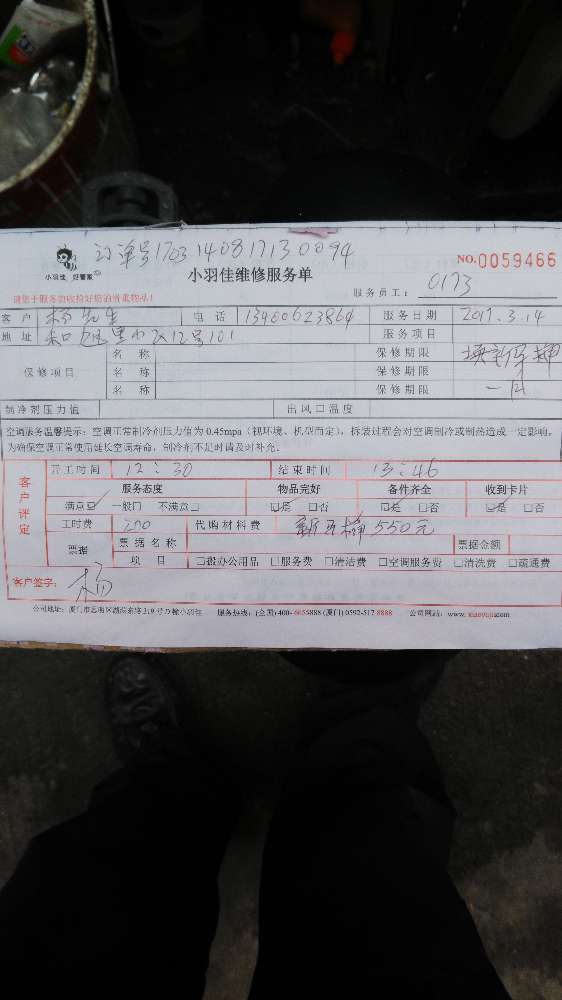 订单号170314081713 0094
小羽佳 好管家
小羽佳维修服务单
NO.0059466
请您于服务前收拾好贴的贵重物品!
服务员工: 0173
客户 杨先生 电话 13460623864 服务日期 2017.3.14
地址 12号101 服务项目
保修项目 名称 保修期限
名称 保修期限
名称 保修期限 一年
制冷剂压力值 出风口温度
空调服务温馨提示:空调正常制冷剂压力值为0.45mpa(视环境、机型而定),拆装过程会对空调制冷或制热造成一定影响,
为确保空调正常使用延长空调寿命,制冷剂不足时请及时补充。
客户评定
开工时间 12:30 结束时间 13:46
服务态度 物品完好 备件齐全 收到卡片
满意☑ 一般□ 不满意□ ☑是 □否 ☑是 □否 ☑是 □否
工时费 200 代购材料费 550元
票据 票据名称 票据金额
项目 □搬办公用品 □服务费 □清洁费 □空调服务费 □清洗费 □疏通费
客户签字: 杨
公司地址:厦门市思明区 服务热线:(全国)400-6655888 (厦门)0592-517 8888 公司网站:www.xiaoyujia.com